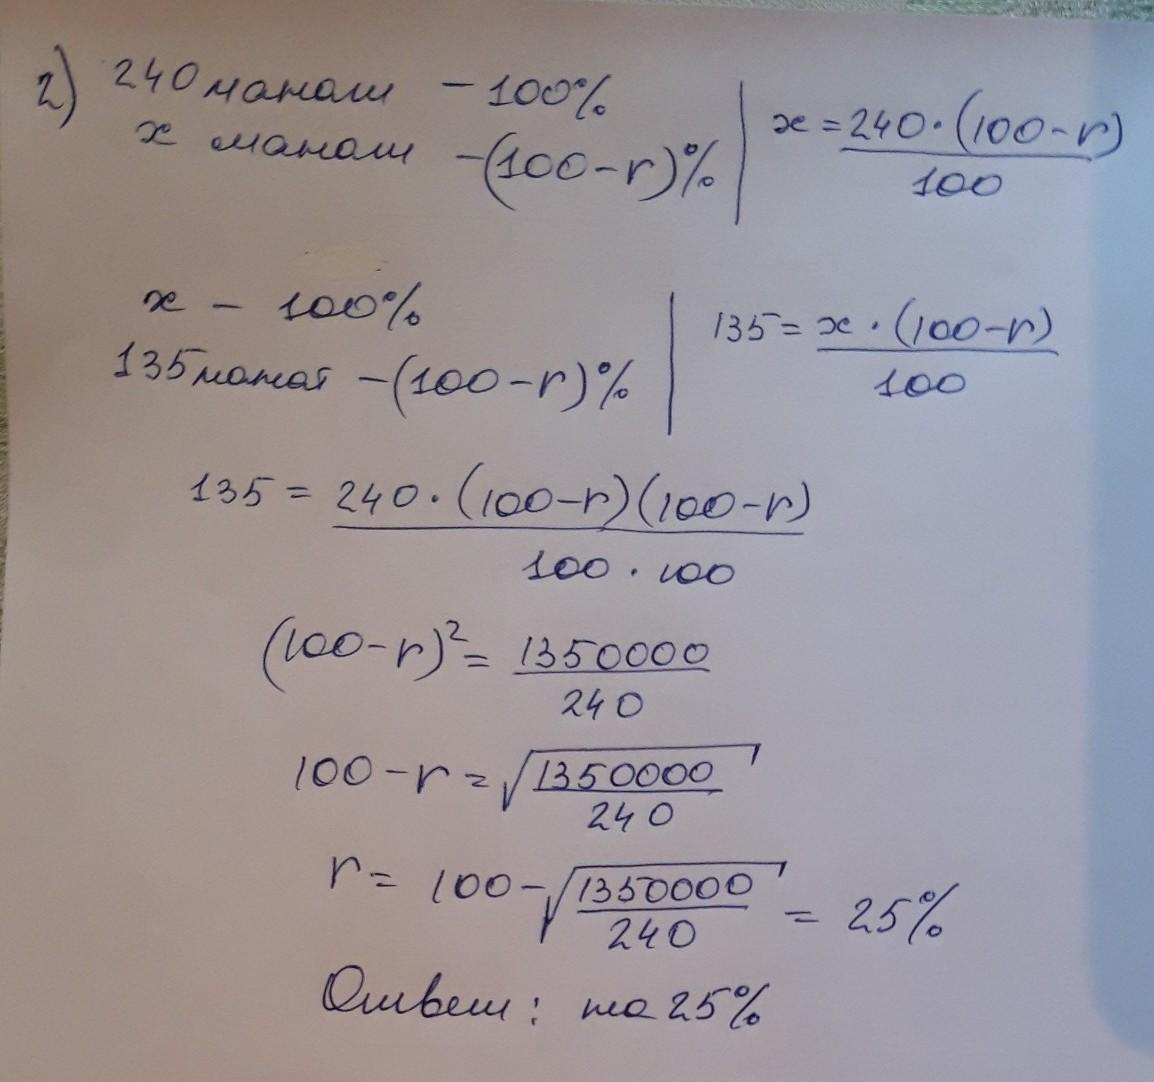 2) 240 манат – 100%
x манат – (100-r)%
x = 240·(100-r)
100
x – 100%
135 манат – (100-r)%
135 = x·(100-r)
100
135 = 240·(100-r)(100-r)
100·100
(100-r)² = 1350000
240
100-r = √1350000
240
r = 100-√1350000 = 25%
240
Ответ: на 25%